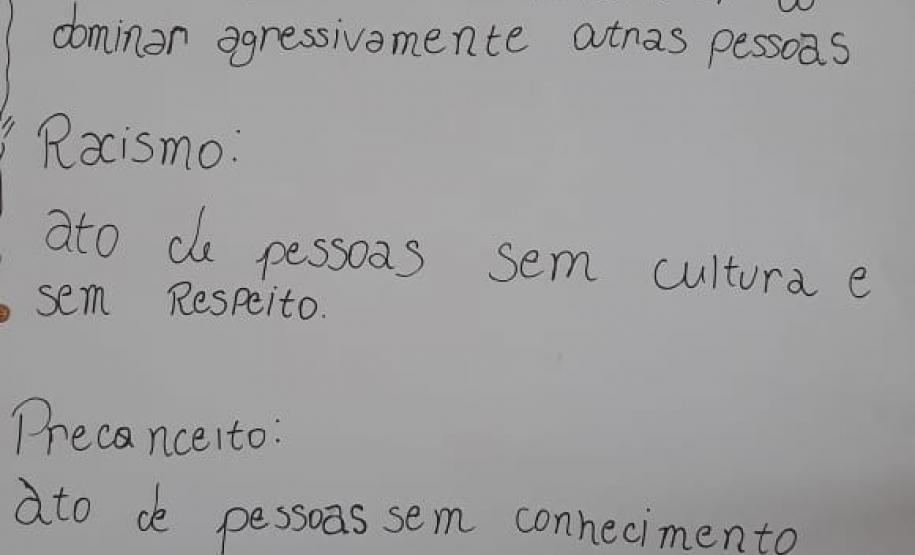 dominar agressivamente outras pessoas
Racismo:
ato de pessoas sem cultura e
sem Respeito.
Preconceito:
ato de pessoas sem conhecimento